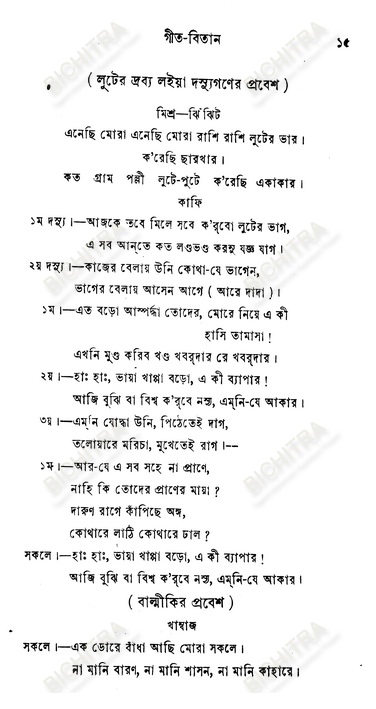 গীত-বিতান ১৫
( লুটের দ্রব্য লইয়া দস্যুগণের প্রবেশ )
মিশ্র—ঝিঁঝিট
এনেছি মোরা এনেছি মোরা রাশি রাশি লুটের ভার।
ক'রেছি ছারখার।
কত গ্রাম পল্লী লুটে-পুটে ক'রেছি একাকার।
কাফি
১ম দস্যু।—আজকে তবে মিলে সবে ক'র্‌বো লুটের ভাগ,
এ সব আন্‌তে কত লণ্ডভণ্ড করনু যজ্ঞ যাগ।
২য় দস্যু।—কাজের বেলায় উনি কোথা-যে ভাগেন,
ভাগের বেলায় আসেন আগে ( আরে দাদা )।
১ম।—এত বড়ো আস্পর্দ্ধা তোদের, মোরে নিয়ে এ কী
হাসি তামাসা!
এখনি মুণ্ড করিব খণ্ড খবরদার রে খবরদার।
২য়।—হাঃ হাঃ, ভায়া খাপ্পা বড়ো, এ কী ব্যাপার!
আজি বুঝি বা বিশ্ব ক'র্‌বে নস্য, এম্‌নি-যে আকার।
৩য়।—এম্‌নি যোদ্ধা উনি, পিঠেতেই দাগ,
তলোয়ারে মরিচা, মুখেতেই রাগ।--
১ম।—আর-যে এ সব সহে না প্রাণে,
নাহি কি তোদের প্রাণের মায়া?
দারুণ রাগে কাঁপিছে অঙ্গ,
কোথারে লাঠি কোথারে ঢাল?
সকলে।—হাঃ হাঃ, ভায়া খাপ্পা বড়ো, এ কী ব্যাপার!
আজি বুঝি বা বিশ্ব ক'র্‌বে নস্য, এম্‌নি-যে আকার।
( বাল্মীকির প্রবেশ )
খাম্বাজ
সকলে।—এক ডোরে বাঁধা আছি মোরা সকলে।
না মানি বারণ, না মানি শাসন, না মানি কাহারে।
BICHITRA